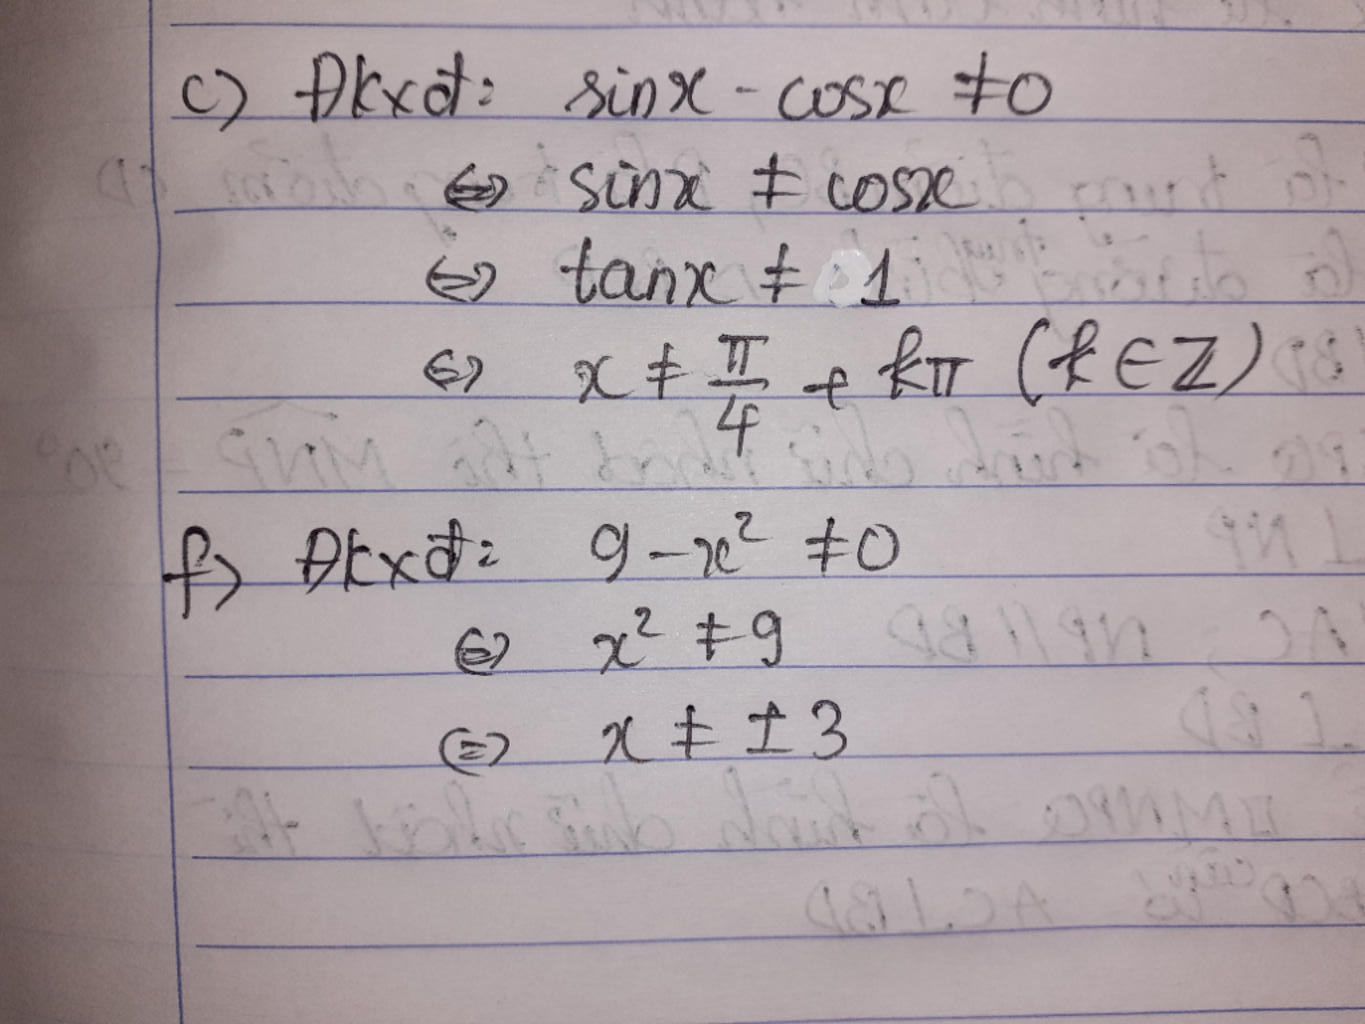 c) Đkxđ: sinx - cosx ≠ 0
⇔ sinx ≠ cosx
⇔ tanx ≠ 1
⇔ x ≠ π/4 + kπ (k ∈ Z)
f) Đkxđ: 9 - x² ≠ 0
⇔ x² ≠ 9
⇔ x ≠ ± 3